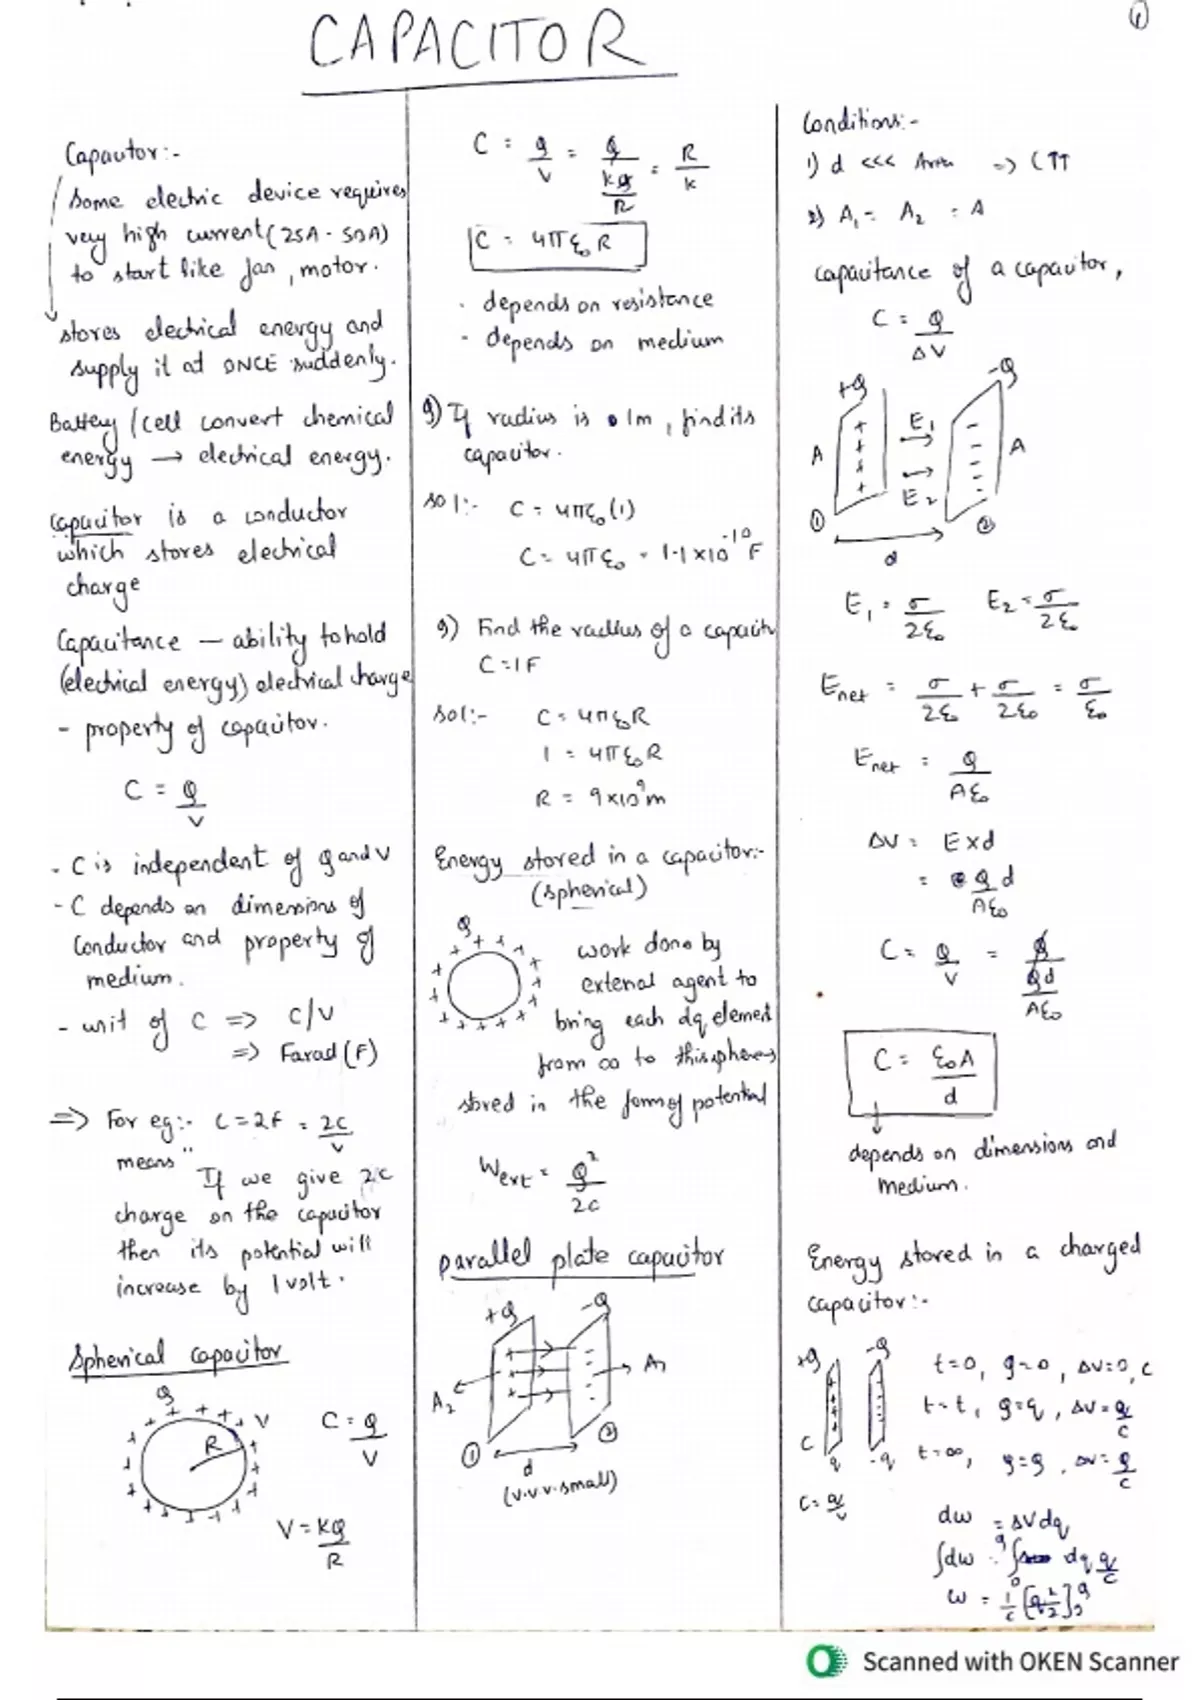 CAPACITOR
Capacitor:-
Some electric device requires
very high current (25A - 50A)
to start like fan, motor.
stores electrical energy and
supply it at ONCE suddenly.
Battery / cell convert chemical
energy → electrical energy.
Capacitor is a conductor
which stores electrical
charge
Capacitance — ability to hold
(electrical energy) electrical charge
- property of capacitor.
C = Q/V
- C is independent of Q and V
- C depends on dimensions of
Conductor and property of
medium.
- unit of C => C/V
=> Farad (F)
=> For eg:- C = 2F = 2C/V
means "
If we give 2C
charge on the capacitor
then its potential will
increase by 1 volt.
Spherical capacitor
Q
+ + + + V
R
C = Q/V
V = KQ/R
C = Q/V = Q/(KQ/R) = R/K
C = 4πε₀R
. depends on resistance
- depends on medium
Q) If radius is 1m, find its
capacitor.
sol:- C = 4πε₀(1)
C = 4πε₀ = 1.1×10⁻¹⁰ F
Q) Find the radius of a capacitor
C = 1F
Sol:- C = 4πε₀R
1 = 4πε₀R
R = 9×10⁹m
Energy stored in a capacitor:-
(spherical)
Q
work done by
external agent to
bring each dq element
from ∞ to this sphere is
stored in the form of potential
Wext = Q²/2C
parallel plate capacitor
+Q -Q
A₂ A₁
① ②
d
(v.v.v.small)
Conditions:-
1) d <<< Area => C↑↑
2) A₁ = A₂ = A
capacitance of a capacitor,
C = Q/ΔV
+Q -Q
A E₁ A
E₂
① ②
d
E₁ = σ/2ε₀ E₂ = σ/2ε₀
Enet = σ/2ε₀ + σ/2ε₀ = σ/ε₀
Enet = Q/Aε₀
ΔV = E×d
= Qd/Aε₀
C = Q/V = Q/(Qd/Aε₀)
C = ε₀A/d
depends on dimensions and
medium.
Energy stored in a charged
capacitor:-
+Q -Q
t=0, q=0, ΔV=0, C
t=t, q=q, ΔV=q/C
C q -q
t=∞, q=Q, ΔV=Q/C
C = q/V
dw = ΔVdq
∫dw = ∫ dq q/C
w = 1/C [q²/2]
Scanned with OKEN Scanner